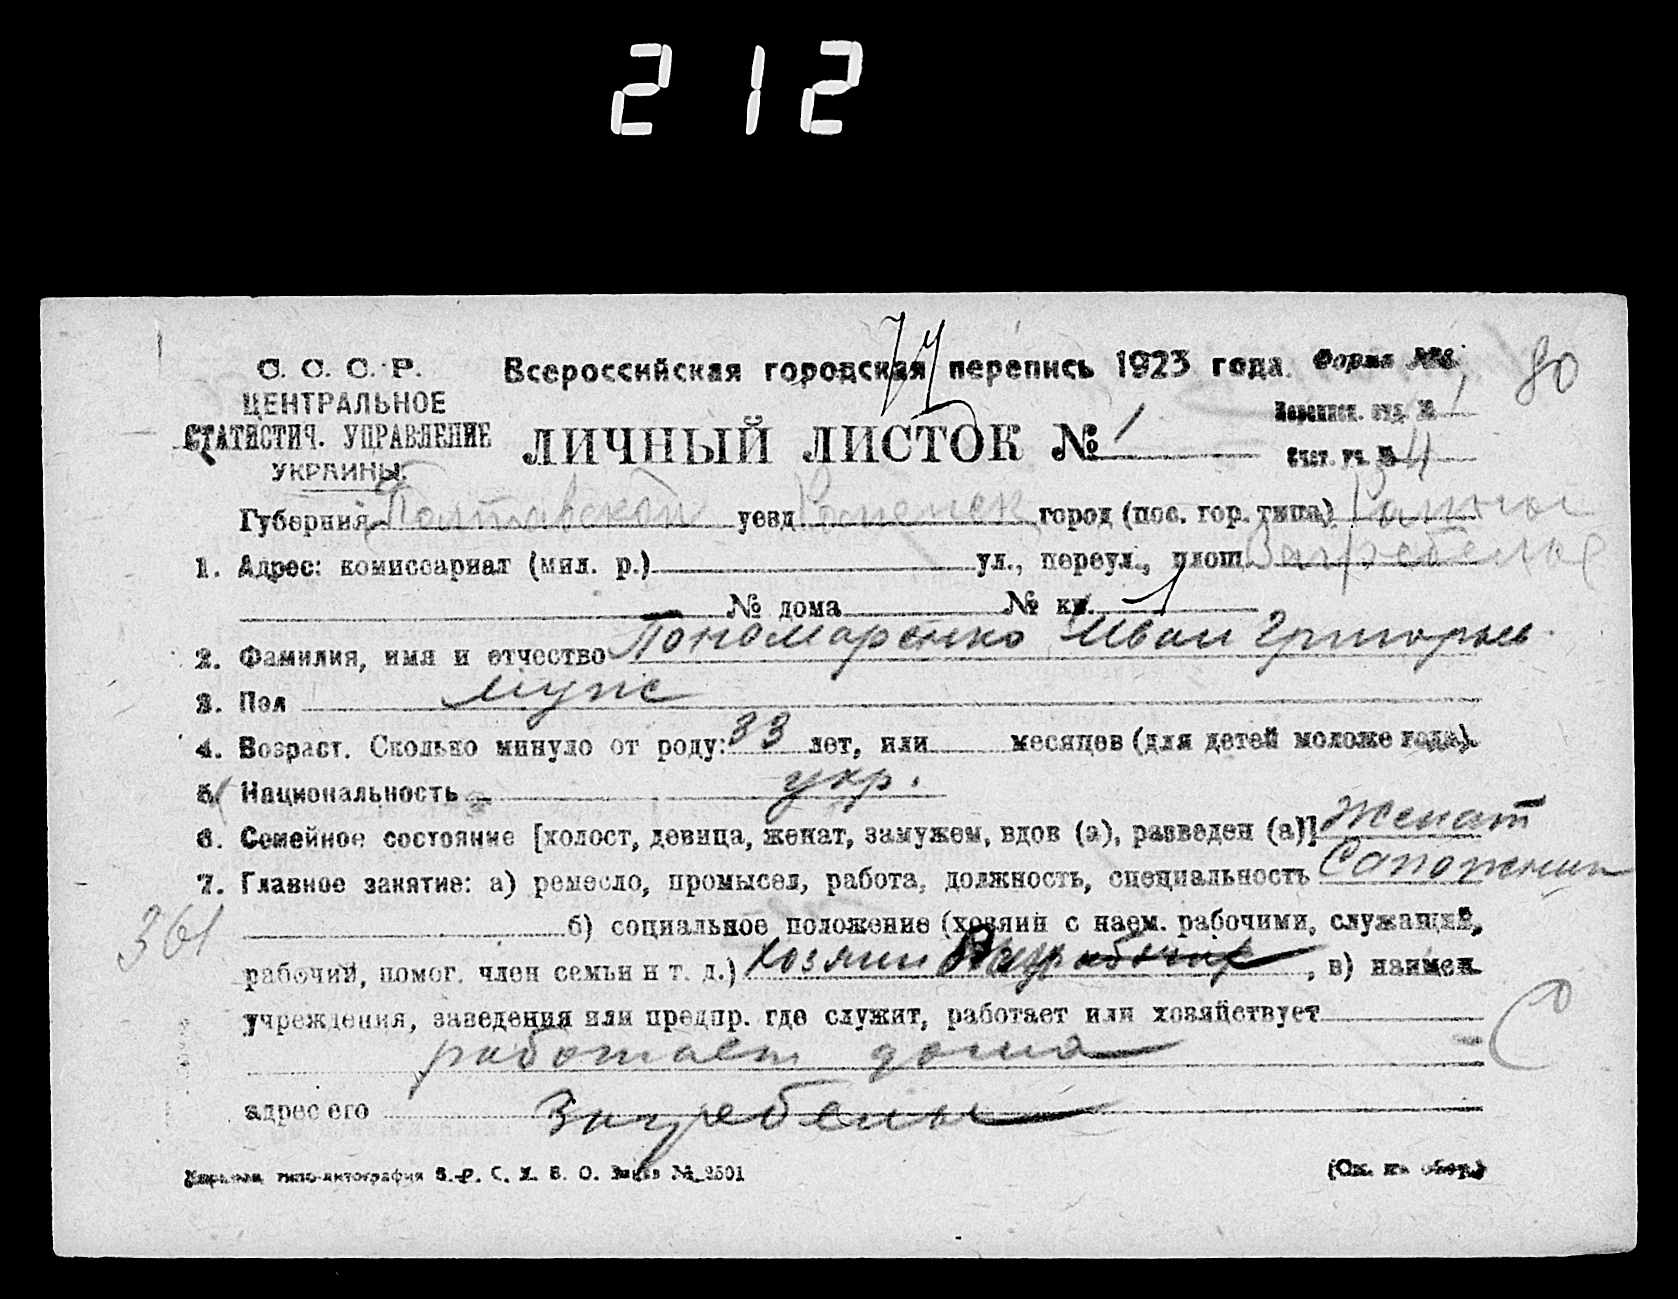 212
С. С. С. Р.
ЦЕНТРАЛЬНОЕ
СТАТИСТИЧ. УПРАВЛЕНИЕ
УКРАИНЫ.
Всероссийская городская перепись 1923 года. Форма №
80
ЛИЧНЫЙ ЛИСТОК № 1
Переписн. отд. № 1
Счет. уч. № 4
Губерния Полтавской уезд Роменск город (пос. гор. типа) Ромны
1. Адрес: комиссариат (мил. р.) ул., переул., площ. Загребелье
№ дома № кв. 1
2. Фамилия, имя и отчество Пономаренко Иван Григорьев
3. Пол муж
4. Возраст. Сколько минуло от роду: 33 лет, или месяцев (для детей моложе года).
5. Национальность укр.
6. Семейное состояние [холост, девица, женат, замужем, вдов (а), разведен (а)] Женат
7. Главное занятие: а) ремесло, промысел, работа, должность, специальность Сапожник
361
б) социальное положение (хозяин с наем. рабочими, служащий,
рабочий, помог. член семьи и т. д.) хозяин , в) наимен.
учреждения, заведения или предпр. где служит, работает или хозяйствует
работает дома
С
адрес его Загребелье
типо-литография Заказ № 2501
(См. на обор.)